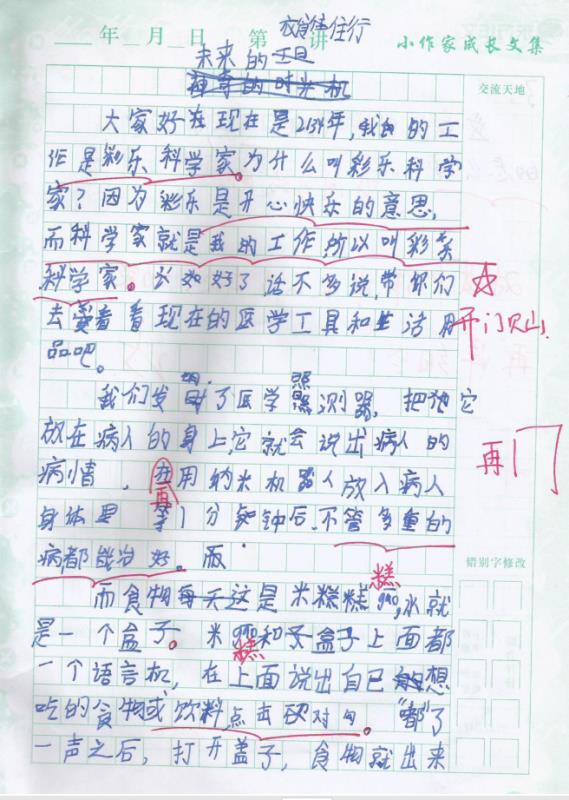 年 月 日 第 讲
衣食住行
小作家成长文集
未来的
神奇的时光机
交流天地
大家好在现在是2154年,我的工
作是彩乐科学家。为什么叫彩乐科学
家?因为彩乐是开心快乐的意思,
而科学家就是我的工作,所以叫彩乐
科学家。好了话不多说,带你们
去看看现在的医学工具和生活用
品吧。
开门见山
我们发明了医学 测器,把它
放在病人的身上,它就会说出病人的
病情,再用纳米机器人放入病人
再
身体里 等1分钟后,不管多重的
病都能治好。
错别字修改
而食物每天这是米糕糕gao,水就
糕
是一个盒子。米 和盒子上面都
糕
一个语言机,在上面说出自己想
吃的食物或饮料点击 对勾。“嘟”了
一声之后,打开盖子,食物就出来